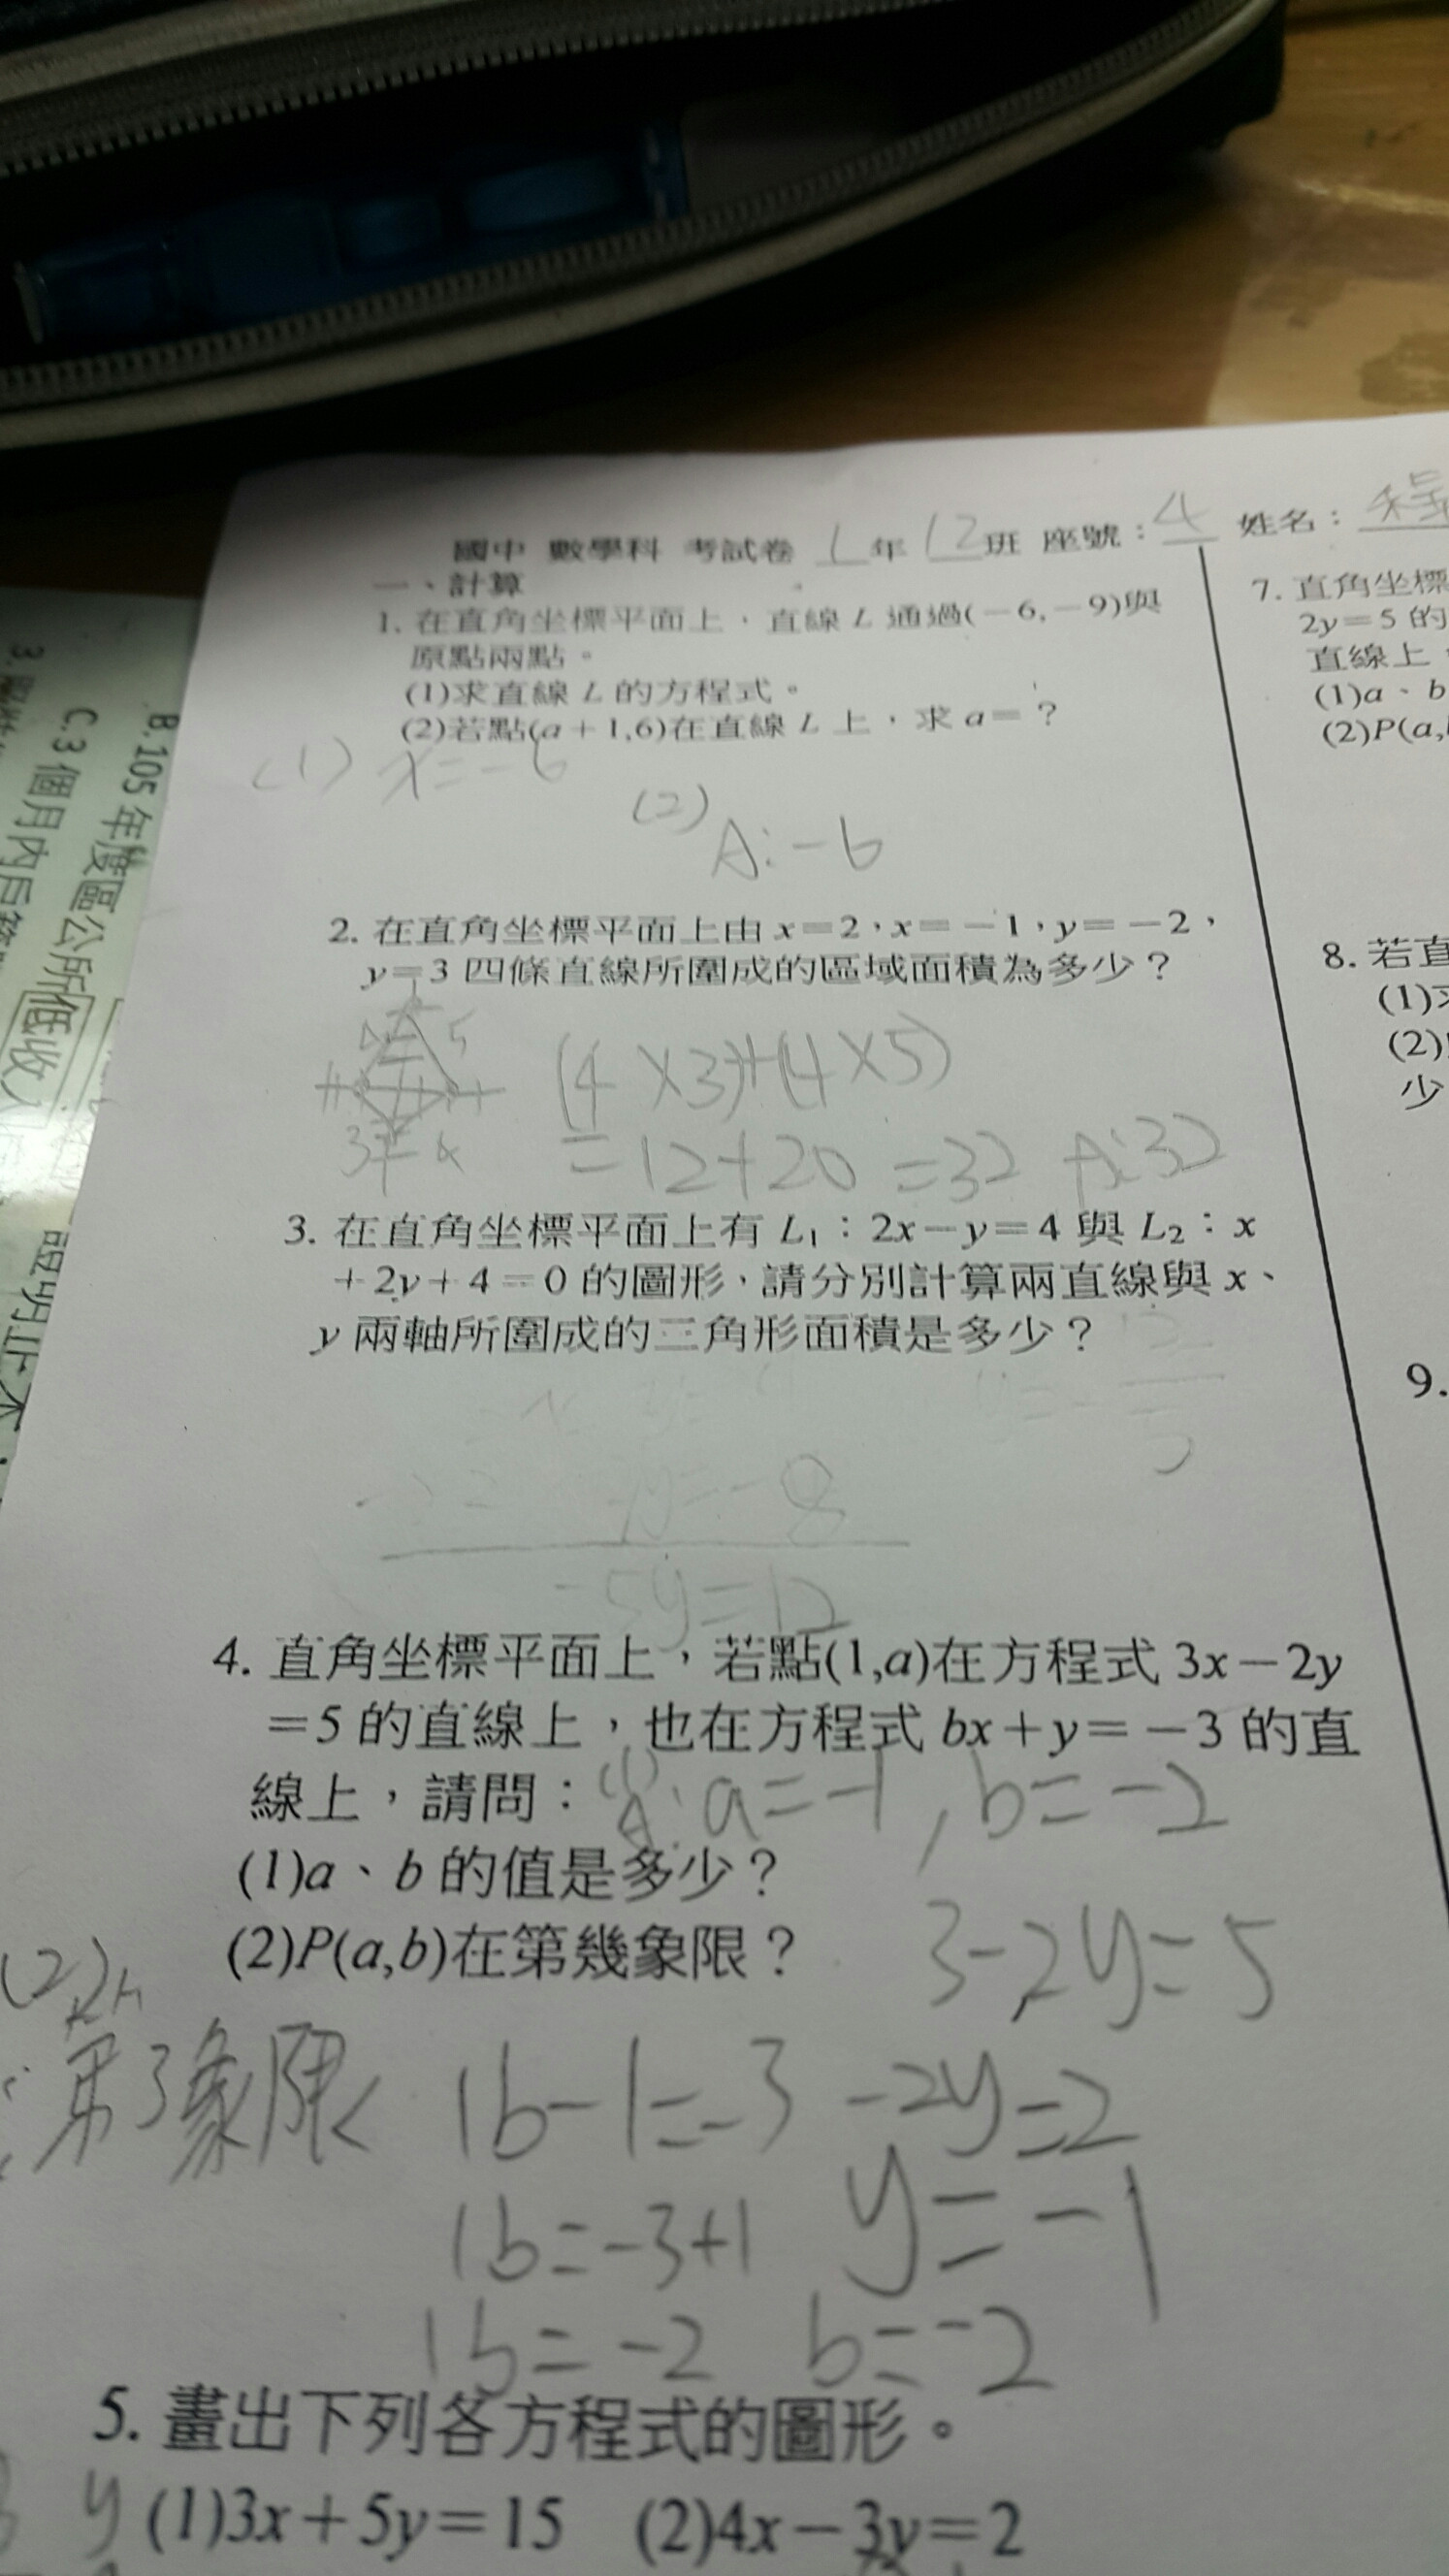 國中 數學科 考試卷 1年 12班 座號：4 姓名：程
一、計算
1. 在直角坐標平面上，直線 L 通過(－6,－9)與
原點兩點。
(1)求直線 L 的方程式。
(2)若點(a＋1,6)在直線 L 上，求 a＝？
(1) x=-6
(2) A:-6
2. 在直角坐標平面上由 x＝2，x＝－1，y＝－2，
y＝3 四條直線所圍成的區域面積為多少？
5
(4×3)+(4×5)
3
4
=12+20=32 A:32
3. 在直角坐標平面上有 L₁：2x－y＝4 與 L₂：x
＋2y＋4＝0 的圖形，請分別計算兩直線與 x、
y 兩軸所圍成的三角形面積是多少？
-5y=12
4. 直角坐標平面上，若點(1,a)在方程式 3x－2y
＝5 的直線上，也在方程式 bx＋y＝－3 的直
線上，請問：
(1) A: a=-1, b=-2
(1)a、b 的值是多少？
(2)P(a,b)在第幾象限？
3-2y=5
(2)A
:第3象限
1b-1=-3
-2y=2
1b=-3+1
y=-1
1b=-2
b=-2
5. 畫出下列各方程式的圖形。
y
(1)3x＋5y＝15 (2)4x－3y＝2
7. 直角坐標
2y＝5 的
直線上
(1)a、b
(2)P(a,
8. 若直
(1)
(2)
少
9.
B.105 年度區公所低收
C.3 個月內戶
3.